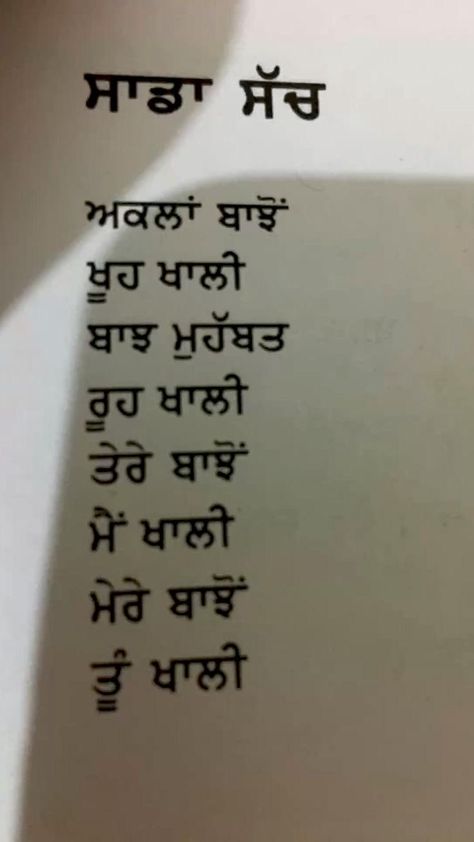 ਸਾਡਾ ਸੱਚ
ਅਕਲਾਂ ਬਾਝੋਂ
ਖੂਹ ਖਾਲੀ
ਬਾਝ ਮੁਹੱਬਤ
ਰੂਹ ਖਾਲੀ
ਤੇਰੇ ਬਾਝੋਂ
ਮੈਂ ਖਾਲੀ
ਮੇਰੇ ਬਾਝੋਂ
ਤੂੰ ਖਾਲੀ